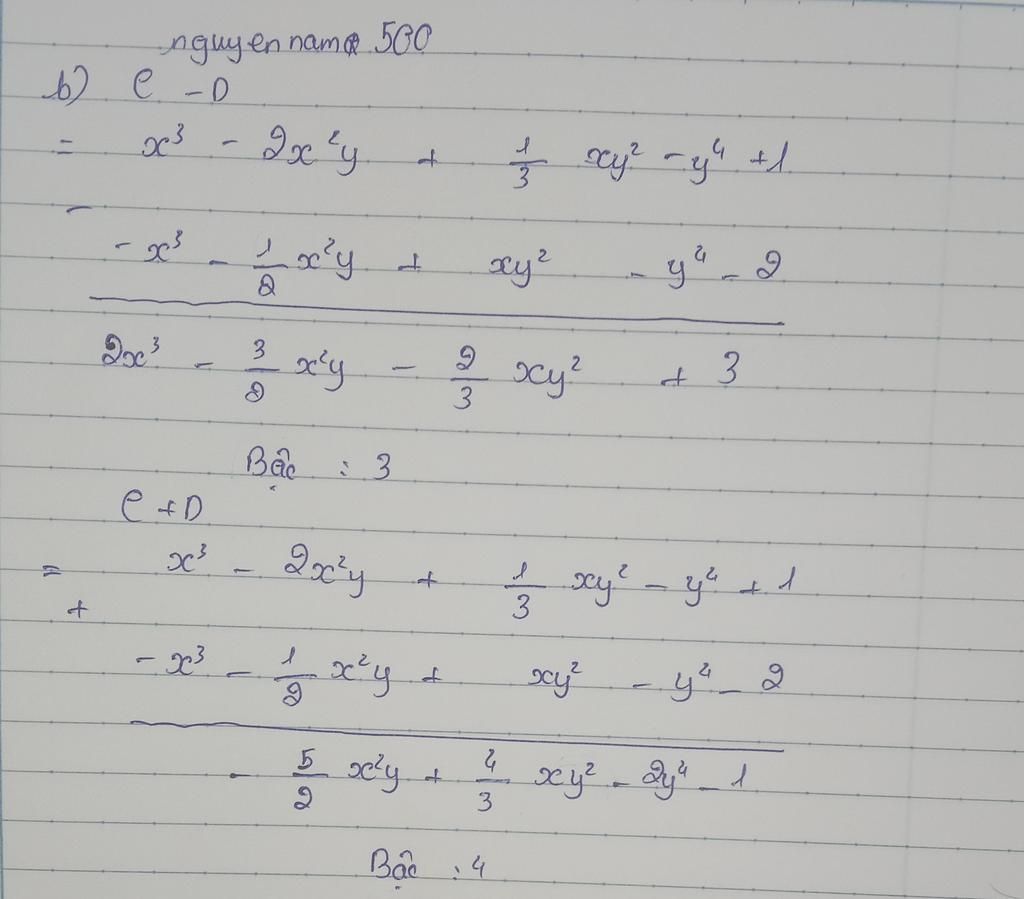 nguyenname 500
b) C - D
= x³ - 2x²y + 1/3 xy² - y⁴ + 1
-
- x³ - 1/2 x²y + xy² - y⁴ - 2
2x³ - 3/2 x²y - 2/3 xy² + 3
Bậc : 3
C + D
= x³ - 2x²y + 1/3 xy² - y⁴ + 1
+
- x³ - 1/2 x²y + xy² - y⁴ - 2
- 5/2 x²y + 4/3 xy² - 2y⁴ - 1
Bậc : 4